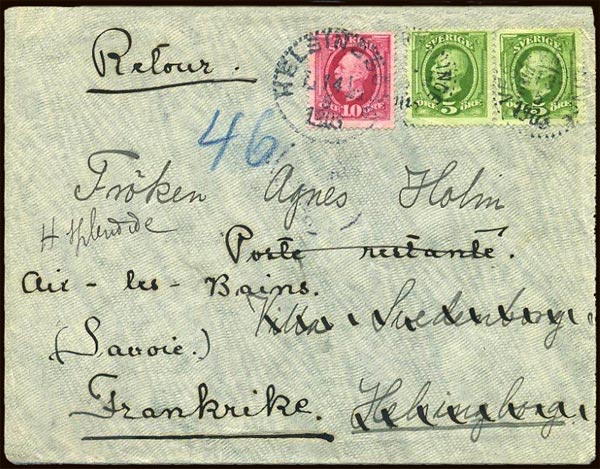 Retour.
HELSINGBORG
14
10 ÖRE
SVERIGE
ÖRE 5 ÖRE
SVERIGE
ÖRE 5 ÖRE
46
Fröken Agnes Holm
H Splendide
Poste restante.
Aix-les-Bains.
Villa Swedenborg
(Savoie.)
Frankrike.
Helsingborg